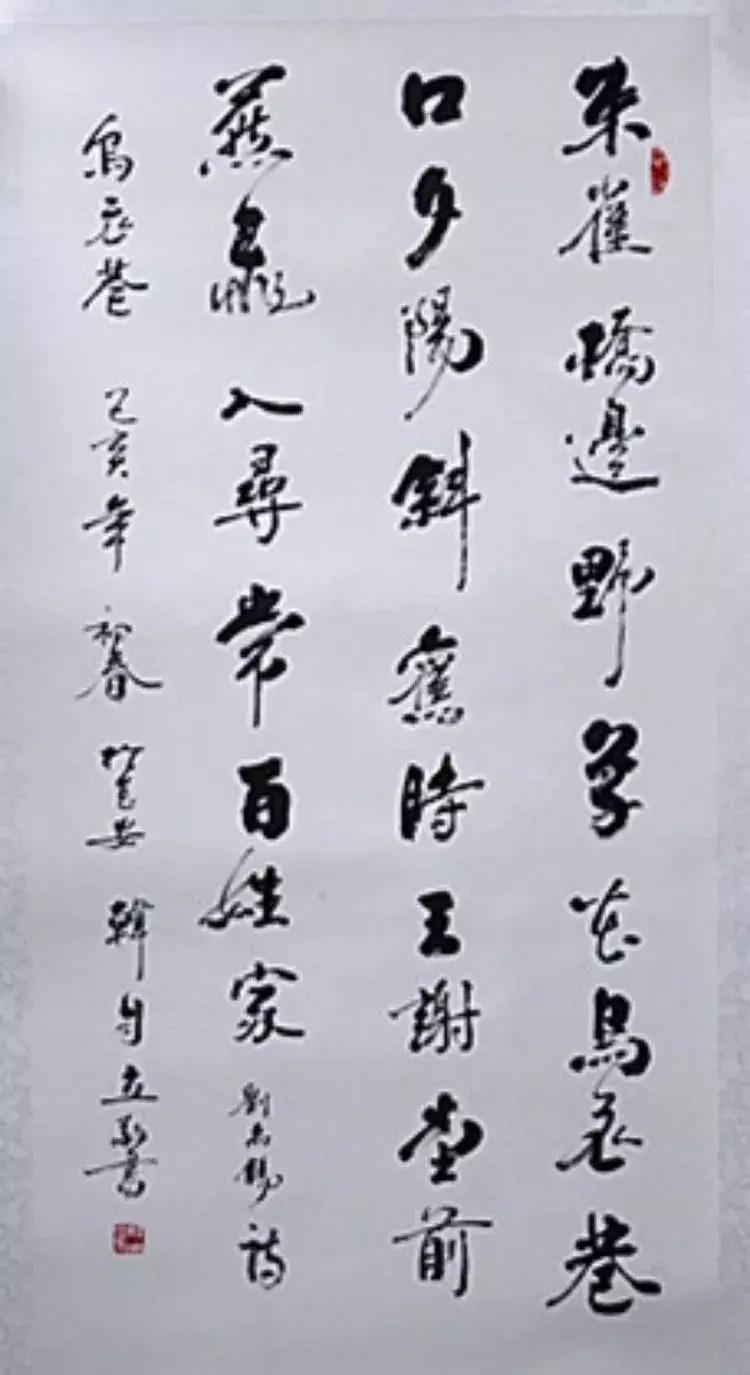 朱雀橋邊野草花烏衣巷
口夕陽斜舊時王謝堂前
燕飛入尋常百姓家 劉禹錫詩
烏衣巷 己亥年 初春 於長安 韓自立書